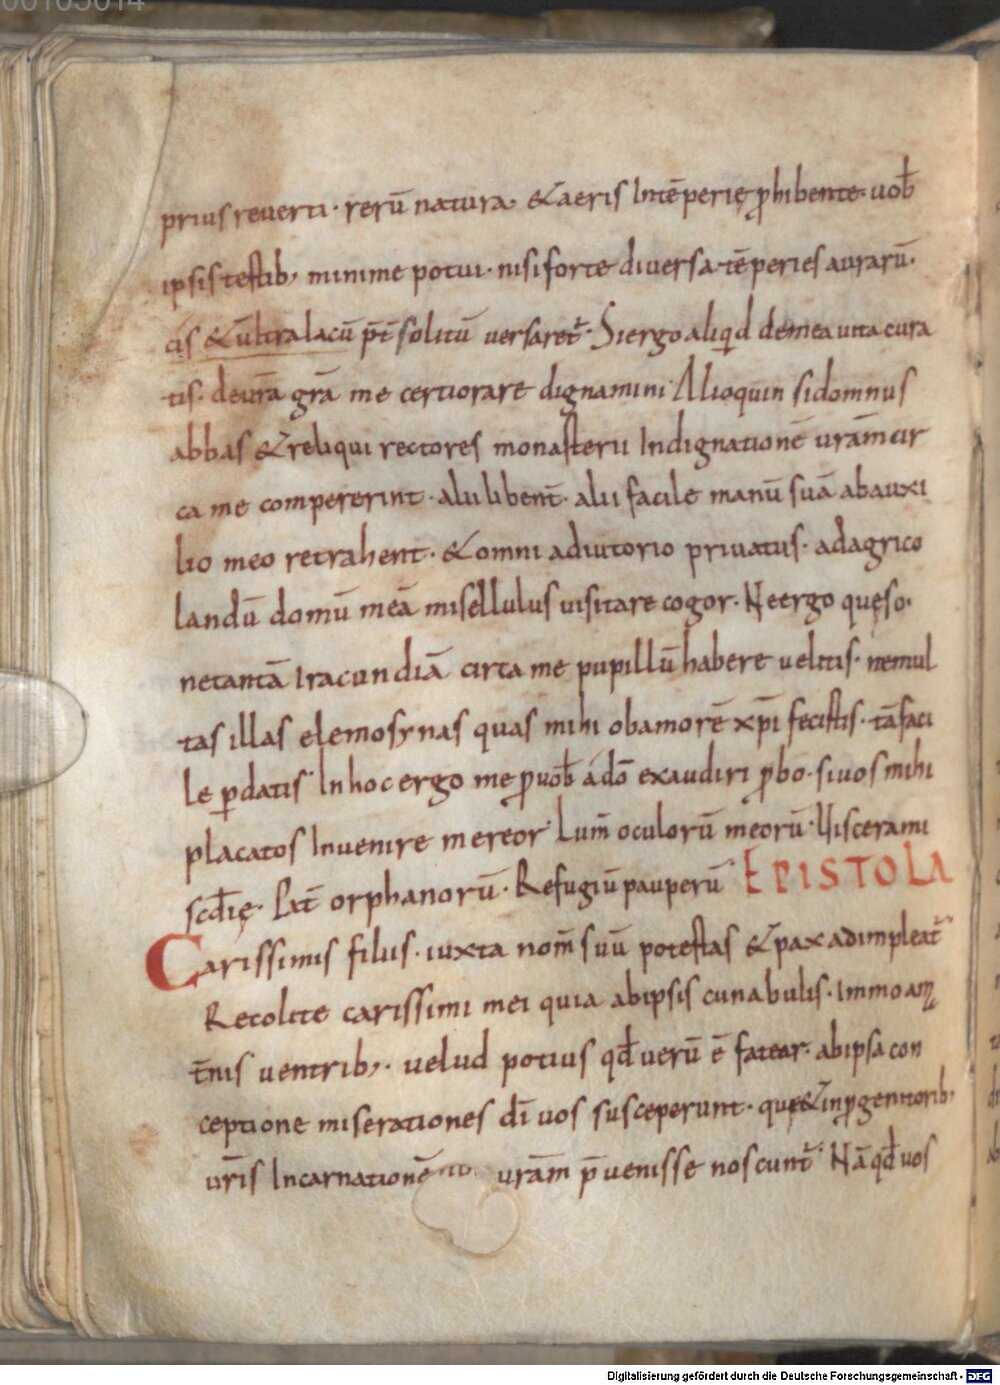 00105014
prius reverti · rerū natura · & aeris Intēperię ꝓhibente · uob̄
ipsis testib; minime potui · nisi forte diversa tēperies aurarū ·
cis & ultra lacū p̄t solitū versaret᷑ · Si ergo aliqid de mea uita cura
tis · de ur̄a gr̄a me certiorare dignamini · Alioquin si domnus
abbas & reliqui rectores monasterii Indignationē ur̄am cir
ca me compererint · alii libent̄ · alii facile manū suā ab auxi
lio meo retrahent · & omni adiutorio priuatus · ad agrico
landū domū meā misellulus uisitare cogor · Ne ergo quęso ·
ne tantā Iracundiā circa me pupillū habere uelitis · ne mul
tas illas elemosynas quas mihi ob amorē xp̄i fecistis · tā faci
le ꝑdatis · In hoc ergo me ꝓ uob̄ a dō exaudiri ꝓbo · si uos mihi
placatos Inuenire mereor · Lum̄ oculorū meorū · Viscera mi
sc̄dię · Pat̄ orphanorū · Refugiū pauperū · EPISTOLA
Carissimis filiis · iuxta nom̄ suū potestas & pax adimpleat᷑
Recolite carissimi mei quia ab ipsis cunabulis · Immo a m̄
t̄nis uentrib; · velud potius qd̄ verū ē fatear · ab ipsa con
ceptione miserationes dī uos susceperunt · que & in ꝓgenitorib;
ur̄is Incarnationē ur̄am p̄venisse noscunt᷑ · Nā qd̄ uos
Digitalisierung gefördert durch die Deutsche Forschungsgemeinschaft - DFG